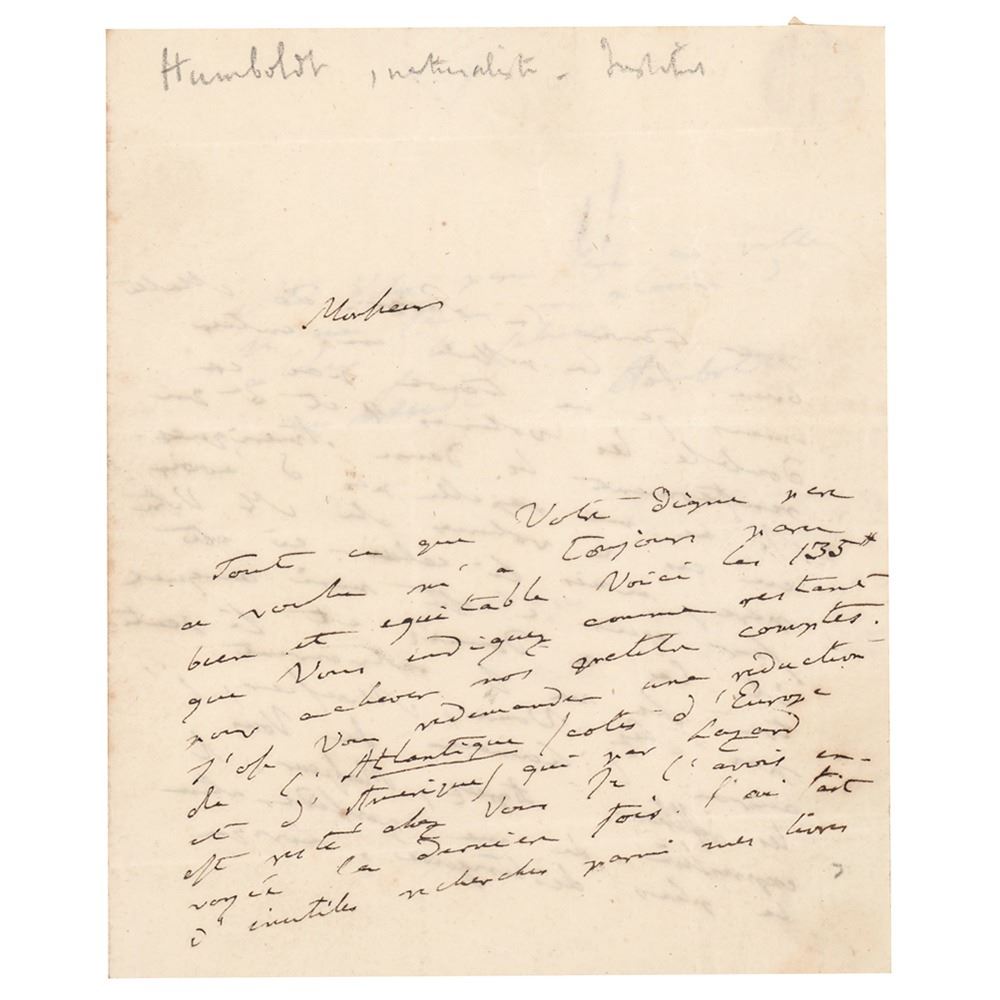 Humboldt, naturaliste - Institut
Monsieur
Tout ce que Votre digne pere
a voulu m'a toujours paru
bien et equitable. Voici les 135 ₶
que Vous indiquez comme restant
pour achever nos petits comptes.
J'ose Vous redemander une reduction
de l'Atlantique (cotes d'Europe
et d'Amerique) qui par hazard
est resté chez Vous. Je l'avois en-
voyé la derniere fois. J'ai fait
d'inutiles recherches parmi mes livres